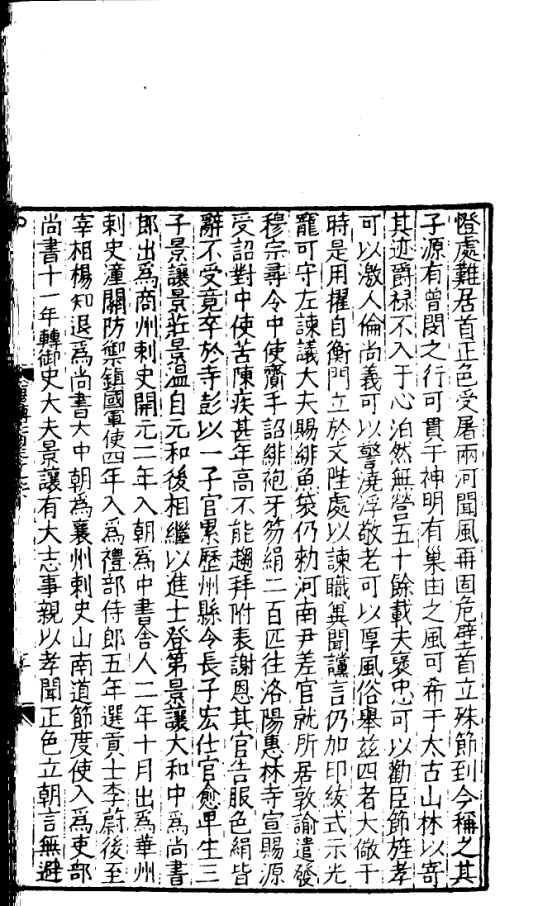 憕處難居首正色受屠兩河聞風再固危壁首立殊節到今稱之其
子源有曾閔之行可貫于神明有巢由之風可希于太古山林以寄
其迹爵禄不入于心泊然無營五十餘載夫褒忠可以勸臣節旌孝
可以激人倫尚義可以警澆浮敬老可以厚風俗舉兹四者大儆于
時是用擢自衡門立於文陛處以諫職兾聞讜言仍加印紱式示光
寵可守左諫議大夫賜緋魚袋仍勑河南尹差官就所居敦諭遣發
穆宗尋令中使齎手詔緋袍牙笏絹二百匹往洛陽惠林寺宣賜源
受詔對中使苦陳疾甚年高不能趨拜附表謝恩其官告服色絹皆
辭不受竟卒於寺彭以一子官累歷州縣令長子宏仕官愈卑生三
子景讓景莊景温自元和後相繼以進士登第景讓大和中爲尚書
郎出爲商州刺史開元二年入朝爲中書舍人二年十月出爲華州
刺史潼關防禦鎮國軍使四年入爲禮部侍郎五年選貢士李蔚後至
宰相楊知退爲尚書大中朝爲襄州刺史山南道節度使入爲吏部
尚書十一年轉御史大夫景讓有大志事親以孝聞正色立朝言無避